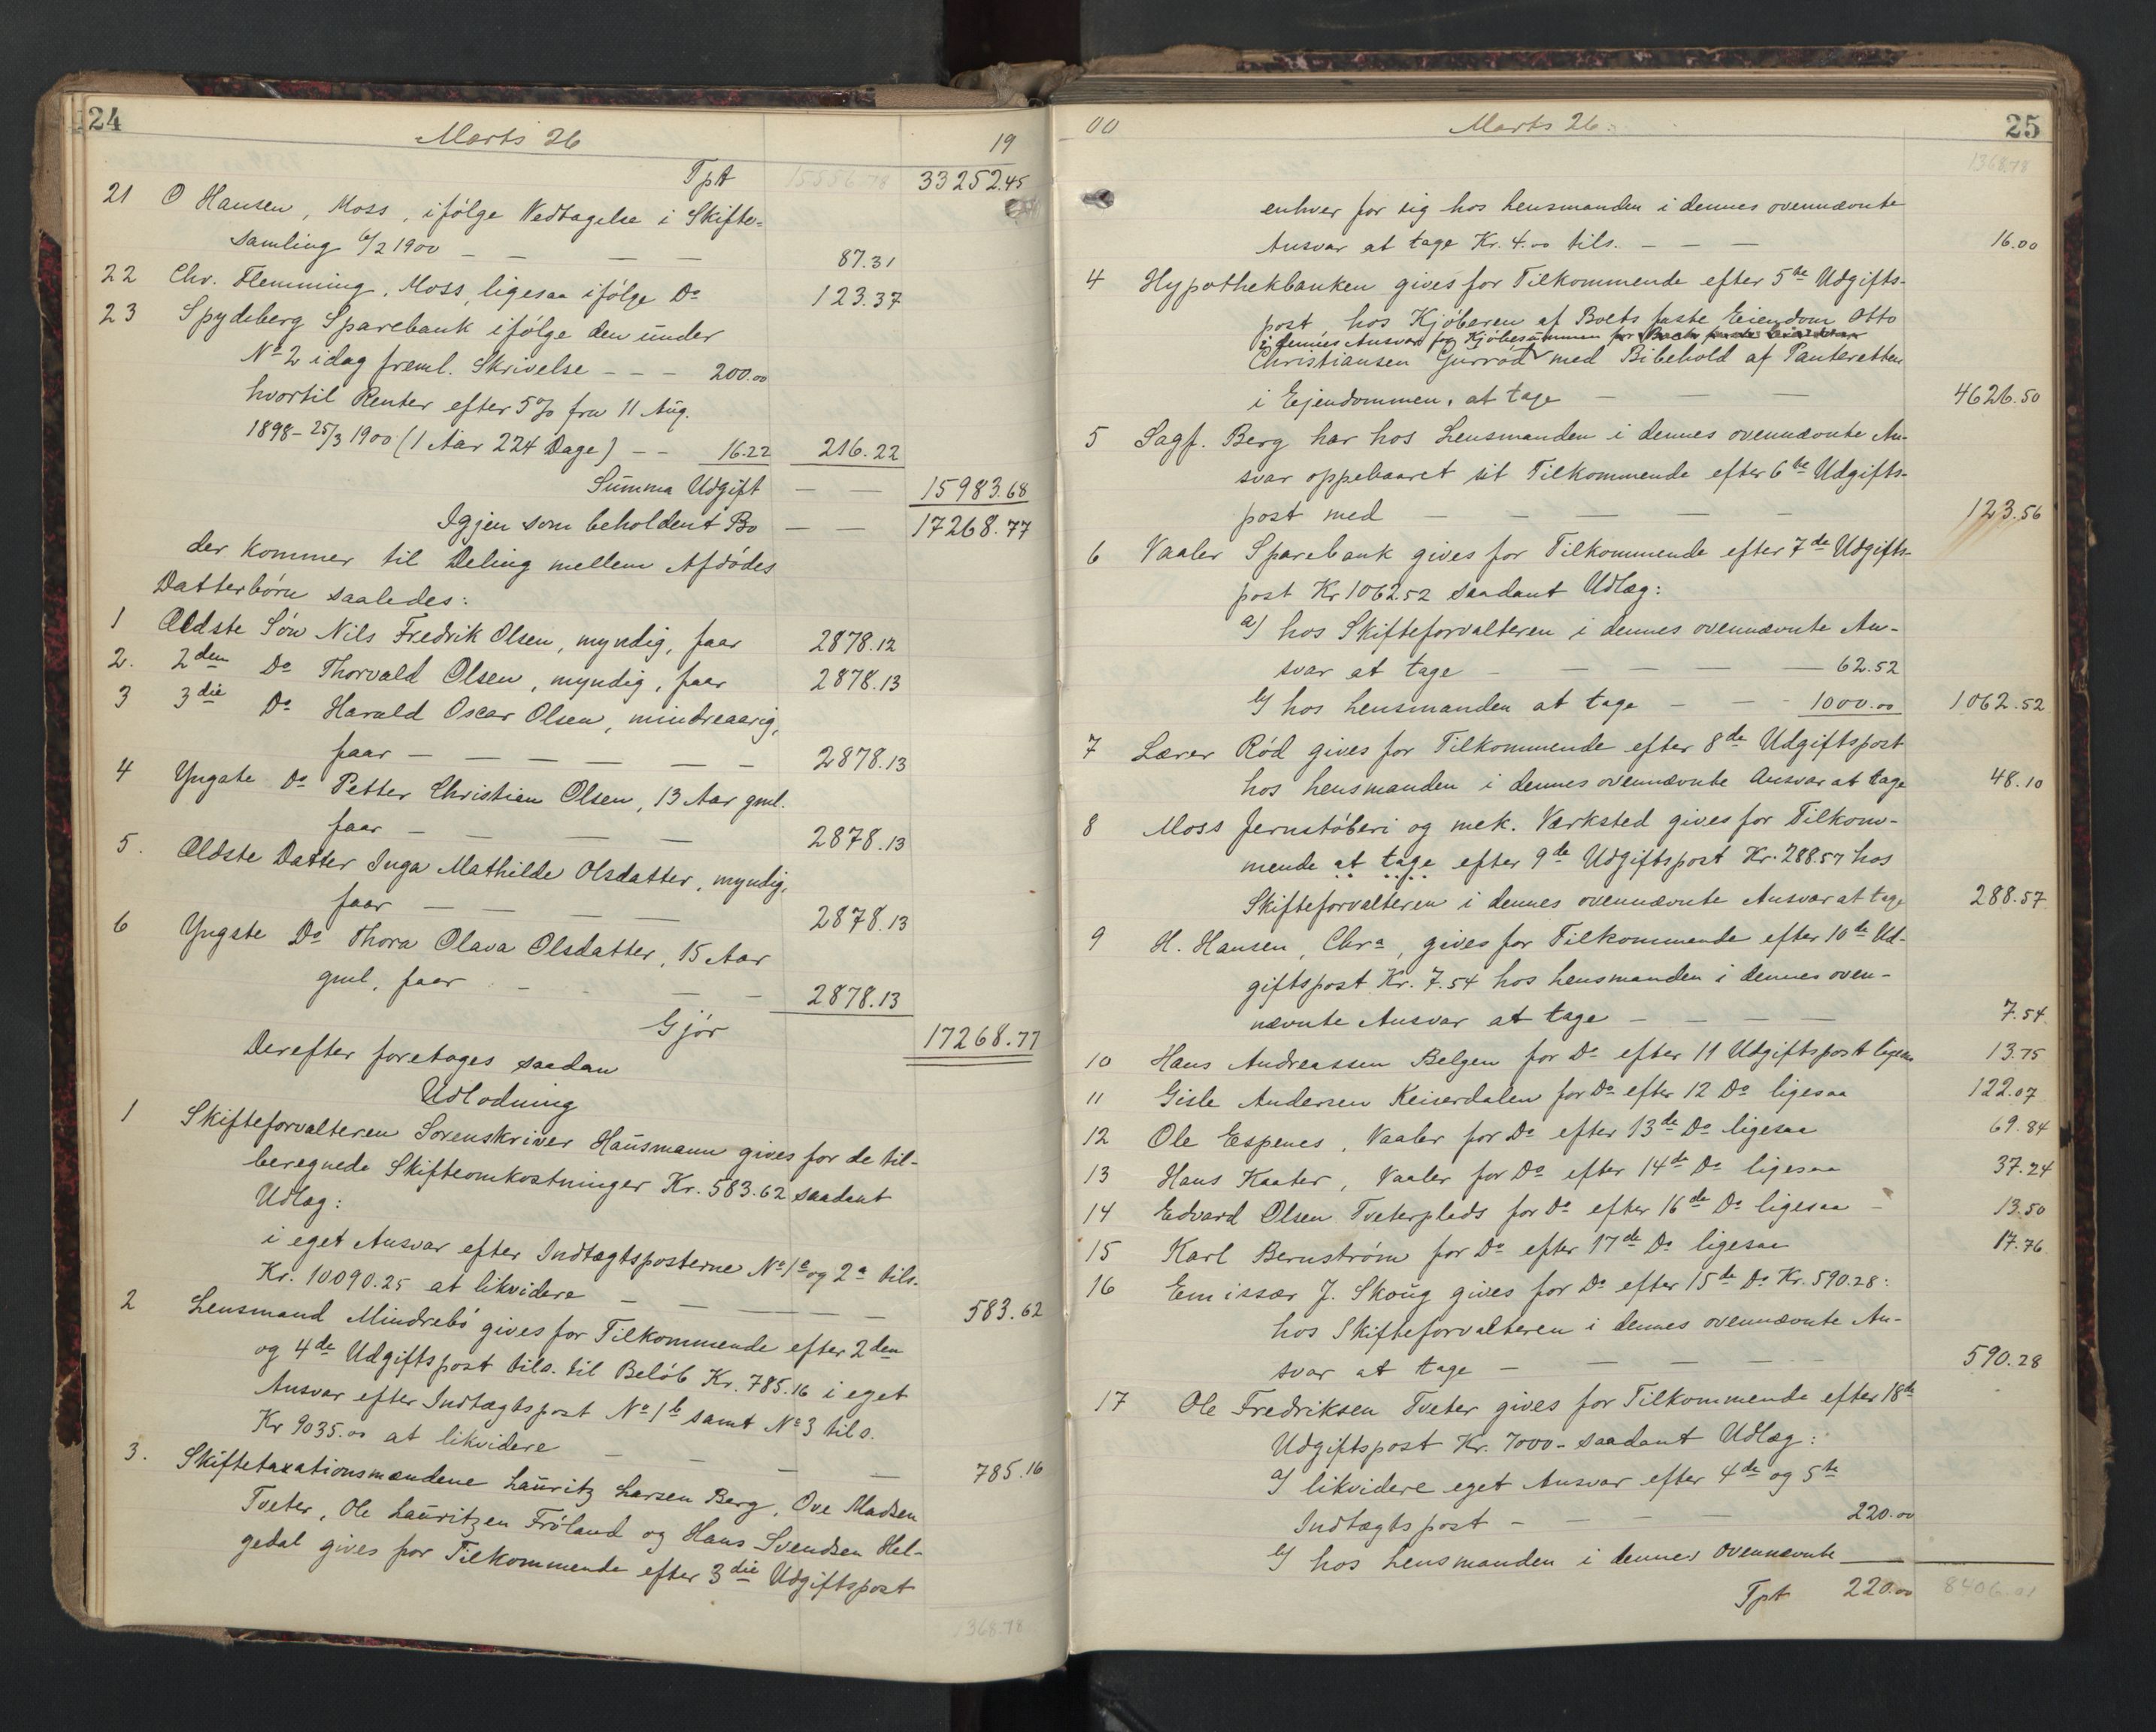 24
Marts 26
19
Tpt 15556.78 33252.45
21 O Hansen, Moss, ifølge Vedtagelse i Skifte=
samling 6/2 1900 — — — — 87.31
22 Chr. Flemming, Moss, ligesaa ifølge Do 123.37
23 Spydeberg Sparebank ifølge den under
No 2 idag freml. Skrivelse - - - 200.00
hvortil Renter efter 5% fra 11 Aug.
1898 - 25/3 1900 (1 Aar 224 Dage) - - 16.22 216.22
Summa Udgift — — 15983.68
Igjen som beholdent Bo — — 17268.77
der kommer til Deling mellem Afdødes
Datterbørn saaledes:
1 Ældste Søn Nils Fredrik Olsen, myndig, faar 2878.12
2. 2den Do Thorvald Olsen, myndig, faar 2878.13
3 3die Do Harald Oscar Olsen, mindreaarig,
faar — — — — — — 2878.13
4 Yngste Do Petter Christian Olsen, 13 Aar gml.
faar — — — — 2878.13
5. Ældste Datter Inga Mathilde Olsdatter, myndig,
faar — — — — 2878.13
6 Yngste Do Thora Olava Olsdatter, 15 Aar
gml, faar - - — — 2878.13
Gjør 17268.77
Derefter foretages saadan
Udlodning
1 Skifteforvalteren Sorenskriver Hausmann gives for de til-
beregnede Skifteomkostninger Kr. 583.62 saadant
Udlæg:
i eget Ansvar efter Indtægtsposterne No 1a og 2a tils.
Kr. 10090.25 at likvidere — — — — — 583.62
2 Lensmand Mindrebø gives for Tilkommende efter 2den
og 4de Udgiftspost tils. til Beløb Kr. 785.16 i eget
Ansvar efter Indtægtspost No 1b samt No 3 tils.
Kr 9035.00 at likvidere — — — — 785.16
3. Skiftetaxationsmændene Lauritz Larsen Berg, Ove Madsen
Tveter, Ole Lauritzen Frøland og Hans Svendsen Hel-
gedal gives for Tilkommende efter 3die Udgiftspost
1368.78
00
Marts 26.
25
1368.78
enhver for sig hos Lensmanden i dennes ovennævnte
Ansvar at tage Kr. 4.00 tils. — — — 16.00
4 Hypothekbanken gives for Tilkommende efter 5te Udgifts-
post, hos Kjøberen af Boets faste Eiendom Otto
i dennes Ansvar for Kjøbesummen for Boets faste Eiendom
Christiansen Gurrød med Bibehold af Panteretten
i Ejendommen, at tage — — — 4626.50
5 Sagf. Berg har hos Lensmanden i dennes ovennævnte An-
svar oppebaaret sit Tilkommende efter 6te Udgifts-
post med — — — — — 123.56
6 Vaaler Sparebank gives for Tilkommende efter 7de Udgifts-
post Kr 1062.52 saadant Udlæg:
a/ hos Skifteforvalteren i dennes ovennævnte An-
svar at tage - — — — — 62.52
b/ hos Lensmanden at tage - — - 1000.00 1062.52
7 Lærer Rød gives for Tilkommende efter 8de Udgiftspost
hos Lensmanden i dennes ovennævnte Ansvar at tage 48.10
8 Moss Jernstøberi og mek. Værksted gives for Tilkom-
mende at tage efter 9de Udgiftspost Kr. 288.57 hos
Skifteforvalteren i dennes ovennævnte Ansvar at tage 288.57
9 H. Hansen, Chra, gives for Tilkommende efter 10de Ud-
giftspost Kr. 7.54 hos Lensmanden i dennes oven-
nævnte Ansvar at tage — — — — 7.54
10 Hans Andreassen Belgen for Do efter 11 Udgiftspost ligesaa 13.75
11 Gisle Andersen Keiserdalen for Do efter 12 Do ligesaa 122.07
12 Ole Espenes, Vaaler for Do efter 13de Do ligesaa 69.84
13 Hans Kaater, Vaaler for Do efter 14de Do ligesaa 37.24
14 Edvard Olsen Tveterplads for Do efter 16de Do ligesaa - 13.50
15 Karl Bernstrøm for Do efter 17de Do ligesaa 17.76
16 Emissær J. Skoug gives for Do efter 15de Do Kr. 590.28:
hos Skifteforvalteren i dennes ovennævnte An-
svar at tage - — — — 590.28
17 Ole Fredriksen Tveter gives for Tilkommende efter 18de
Udgiftspost Kr. 7000 - saadant Udlæg:
a/ likvidere eget Ansvar efter 4de og 5te
Indtægtspost - — — — 220.00
b/ hos Lensmanden i dennes ovennævnte
Tpt 220.00 8406.01